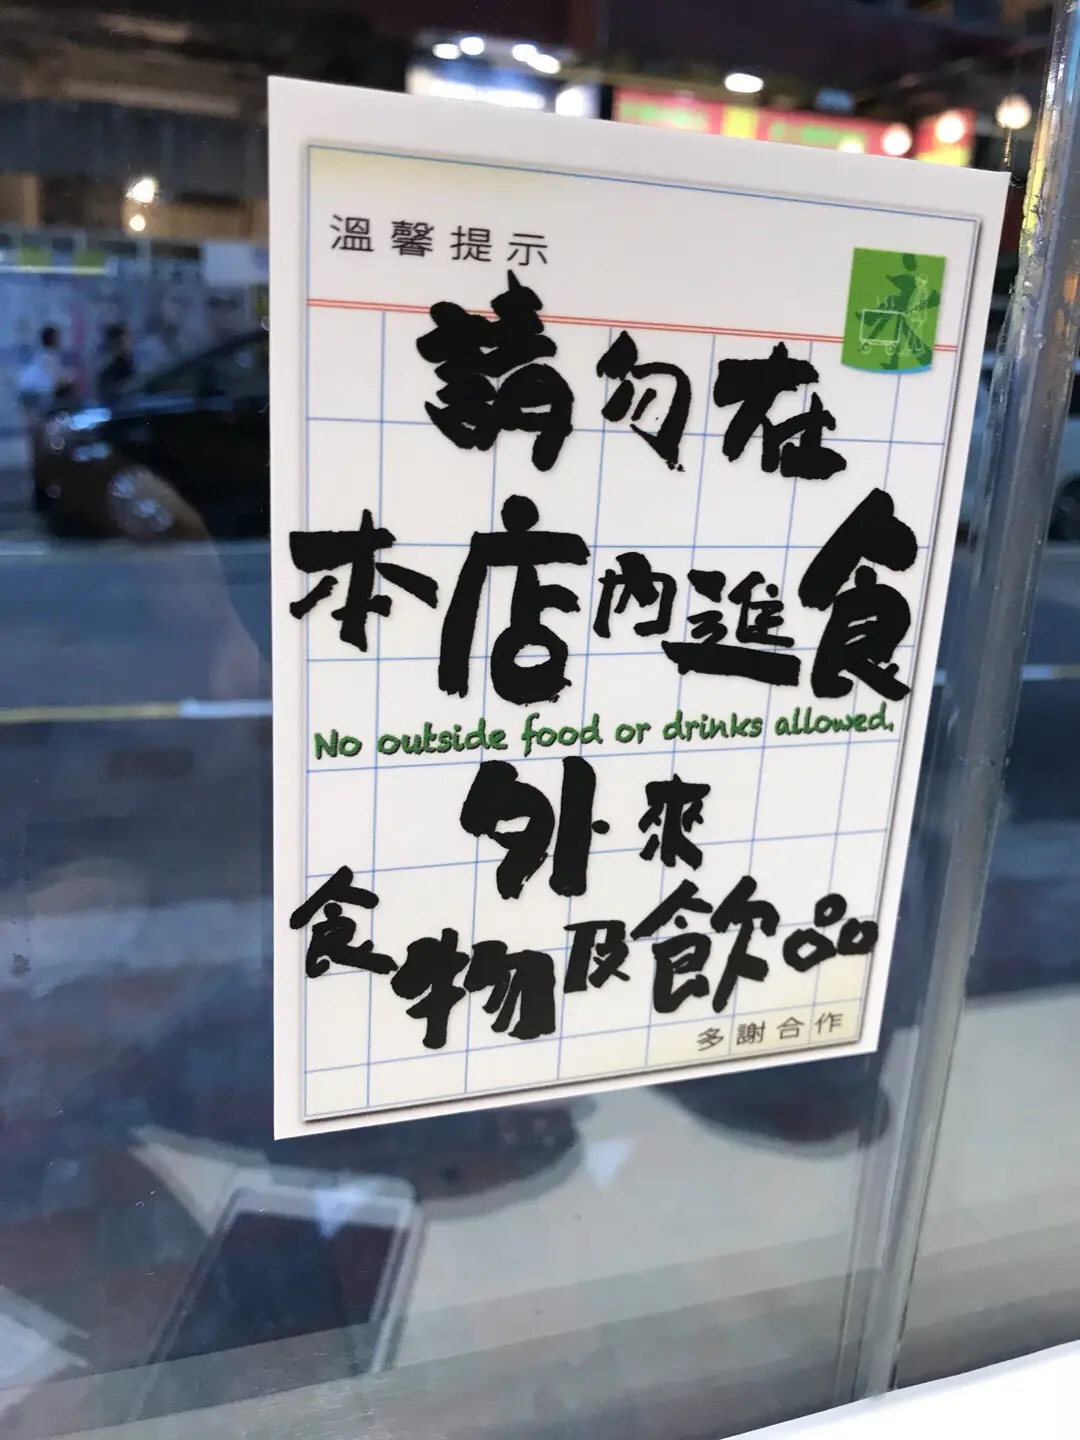 溫馨提示
請勿在
本店內進食
No outside food or drinks allowed.
外來
食物及飲品
多謝合作